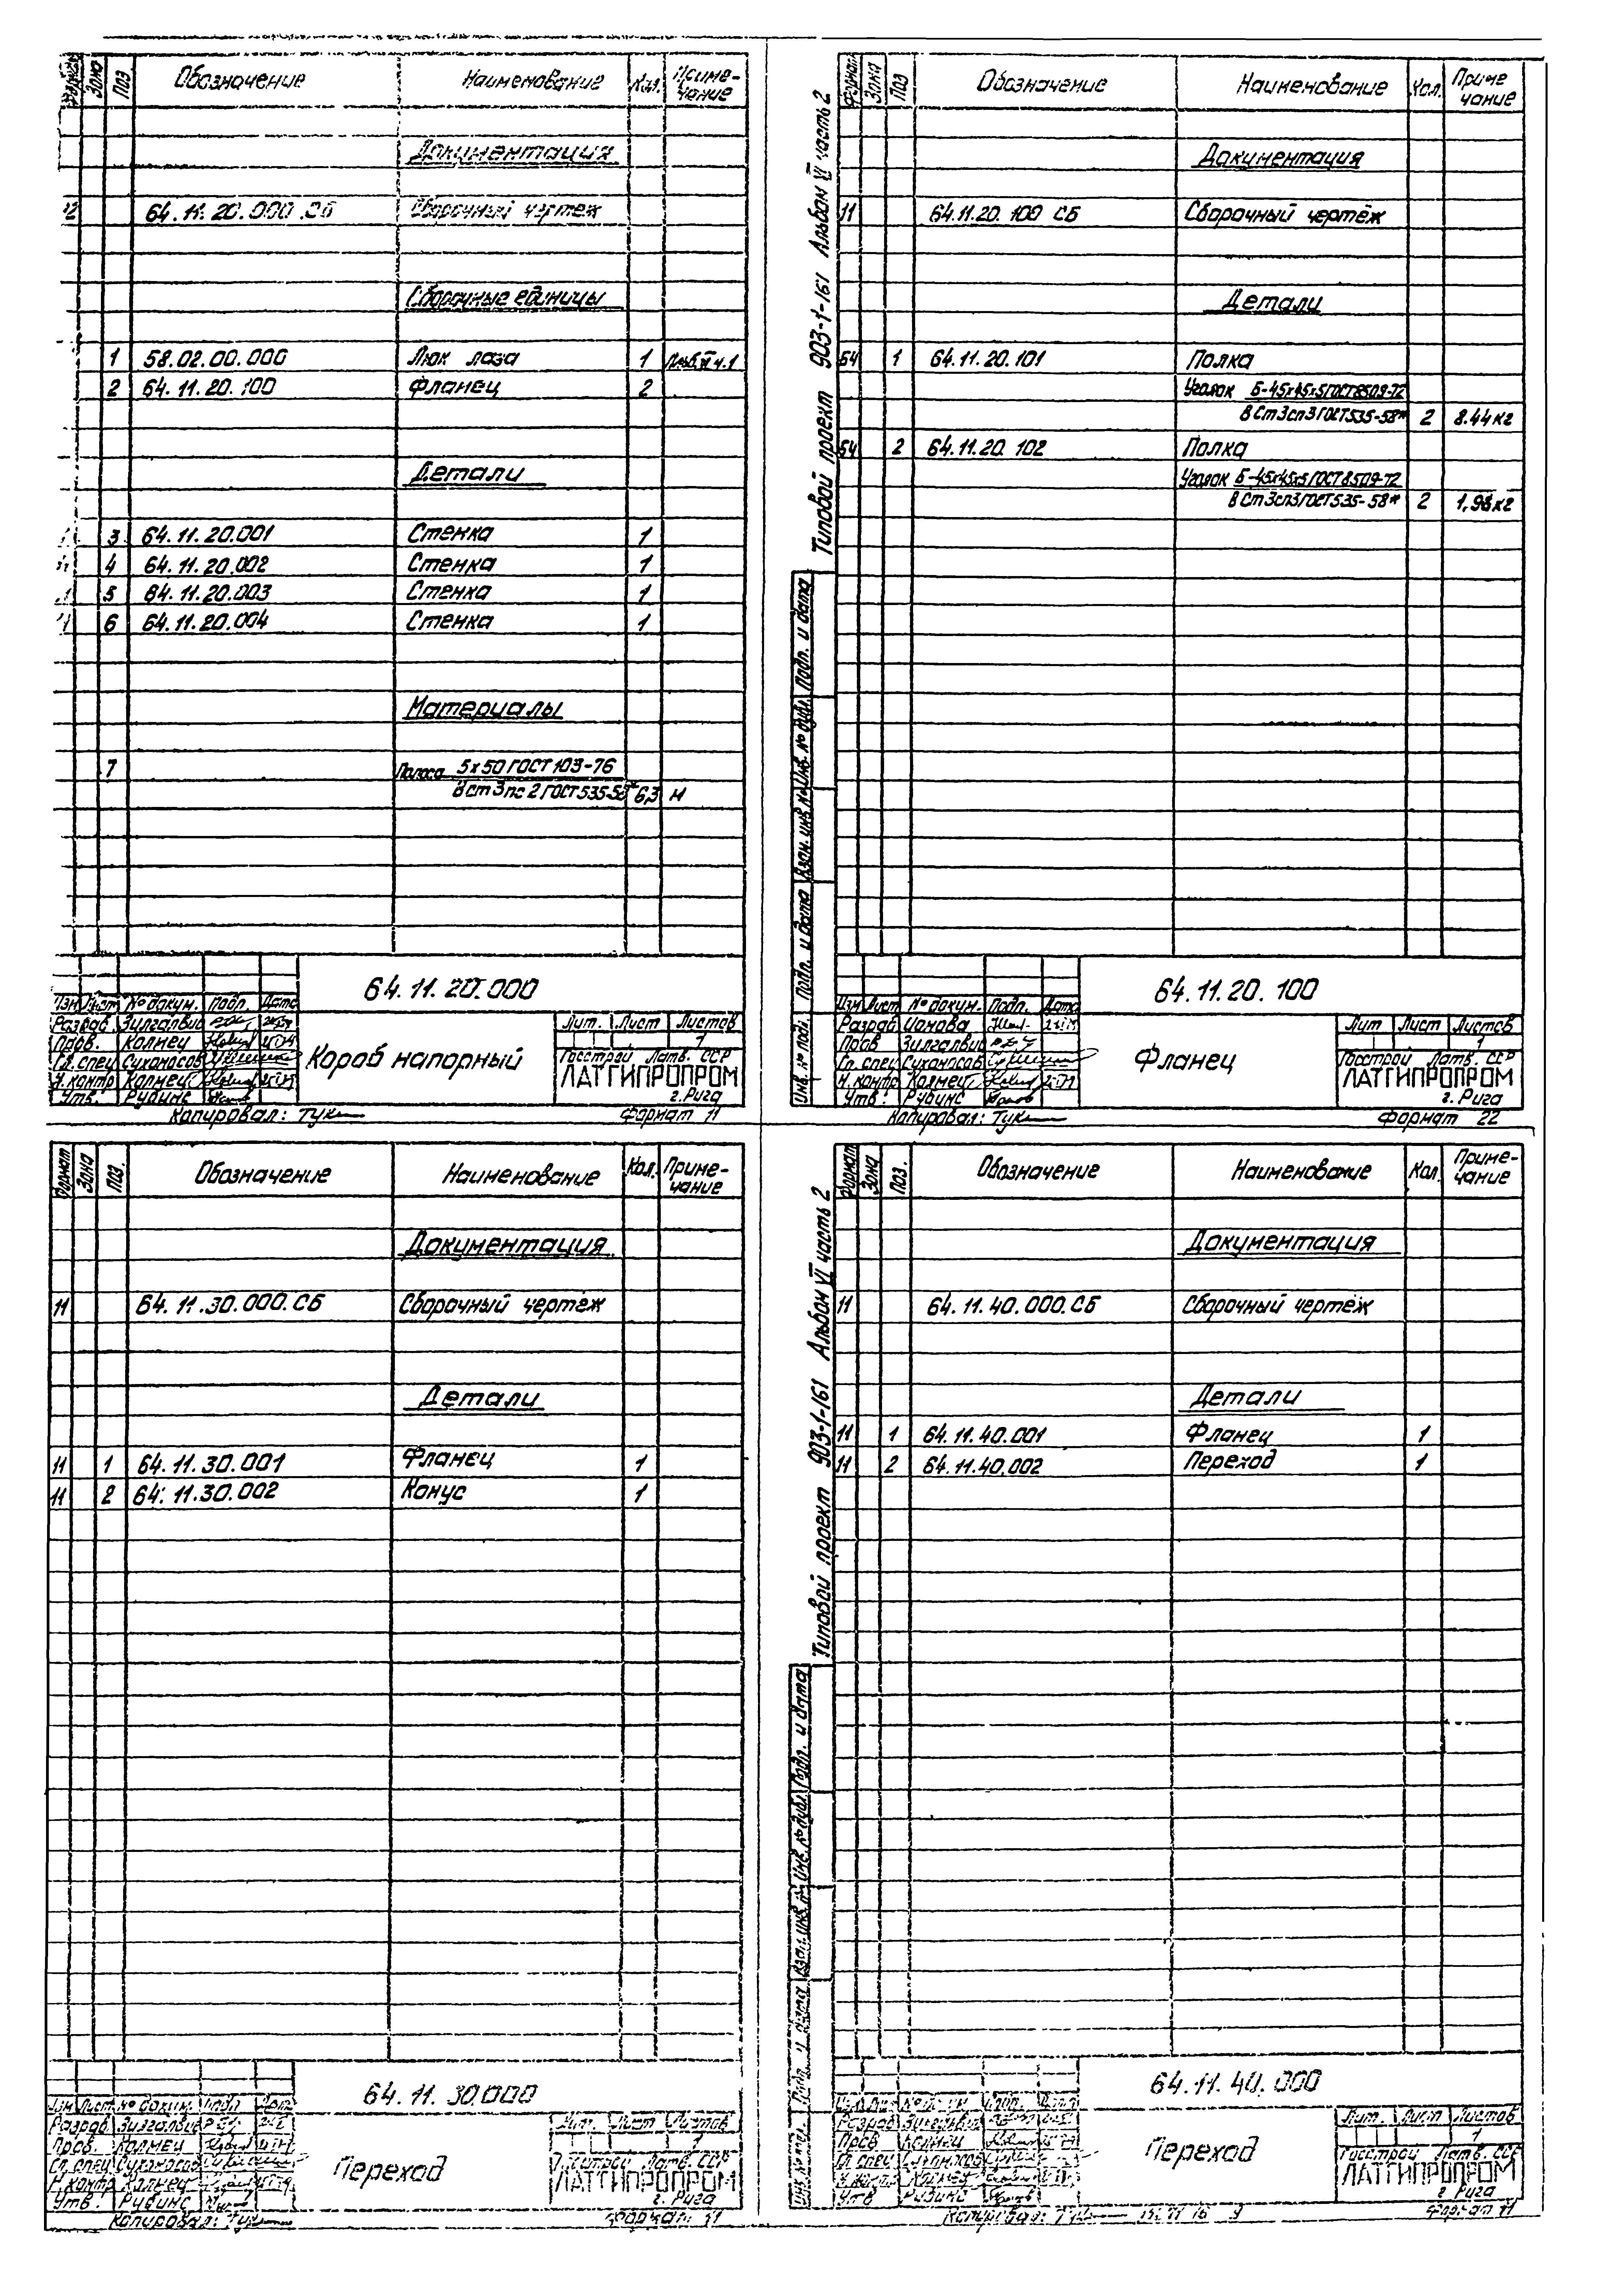 Зона Поз Обозначение Наименование Кол. Приме-чание
Документация
64.11.20.000 СБ Сборочный чертеж
Сборочные единицы
1 58.02.00.000 Люк лаза 1
2 64.11.20.100 Фланец 2
Детали
3 64.11.20.001 Стенка 1
4 64.11.20.002 Стенка 1
5 64.11.20.003 Стенка 1
6 64.11.20.004 Стенка 1
Материалы
7 Полоса 5х50 ГОСТ 103-76
ВСт3пс2 ГОСТ 535-58* 6,3 м
64.11.20.000
Изм Лист № докум. Подп. Дата
Разраб. Зилгалвис
Пров. Калмец
Гл. спец Сухоносов
Н.контр Калмец
Утв. Рубинс
Короб напорный
Лит. Лист Листов
1
Госстрой Латв. ССР
ЛАТГИПРОПРОМ
г. Рига
Копировал: Формат 11
Типовой проект 903-1-161 Альбом VI часть 2
Инв. № подл. Подп. и дата Взам. инв. № Инв. № дубл. Подп. и дата
Формат Зона Поз Обозначение Наименование Кол. Приме чание
Документация
11 64.11.20.100 СБ Сборочный чертёж
Детали
БЧ 1 64.11.20.101 Полка
Уголок Б-45х45х5 ГОСТ 8509-72
ВСт3сп3 ГОСТ 535-58* 2 8.44 кг
БЧ 2 64.11.20.102 Полка
Уголок Б-45х45х5 ГОСТ 8509-72
ВСт3сп3 ГОСТ 535-58* 2 1,98 кг
64.11.20.100
Изм Лист № докум. Подп. Дата
Разраб Ионова
Пров Зилгалвис
Гл. спец Сухоносов
Н.контр Калмец
Утв. Рубинс
Фланец
Лит Лист Листов
1
Госстрой Латв. ССР
ЛАТГИПРОПРОМ
г. Рига
Копировал: Формат 22
Формат Зона Поз. Обозначение Наименование Кол. Приме-чание
Документация
11 64.11.30.000.СБ Сборочный чертёж
Детали
11 1 64.11.30.001 Фланец 1
11 2 64.11.30.002 Конус 1
64.11.30.000
Изм Лист № докум. Подп Дат
Разраб Зилгалвис
Пров. Калмец
Гл. спец Сухоносов
Н.контр Калмец
Утв. Рубинс
Переход
Лит. Лист Листов
1
Госстрой Латв. ССР
ЛАТГИПРОПРОМ
г. Рига
Копировал: Формат 11
Типовой проект 903-1-161 Альбом VI часть 2
Инв. № подл. Подп. и дата Взам. инв. № Инв. № дубл. Подп. и дата
Формат Зона Поз. Обозначение Наименование Кол. Приме-чание
Документация
11 64.11.40.000.СБ Сборочный чертёж
Детали
11 1 64.11.40.001 Фланец 1
11 2 64.11.40.002 Переход 1
64.11.40.000
Разраб Зилгалвис
Пров Калмец
Гл. спец Сухоносов
Н.контр Калмец
Утв Рубинс
Переход
Лит. Лист Листов
1
Госстрой Латв. ССР
ЛАТГИПРОПРОМ
г. Рига
Копировал: Формат 11